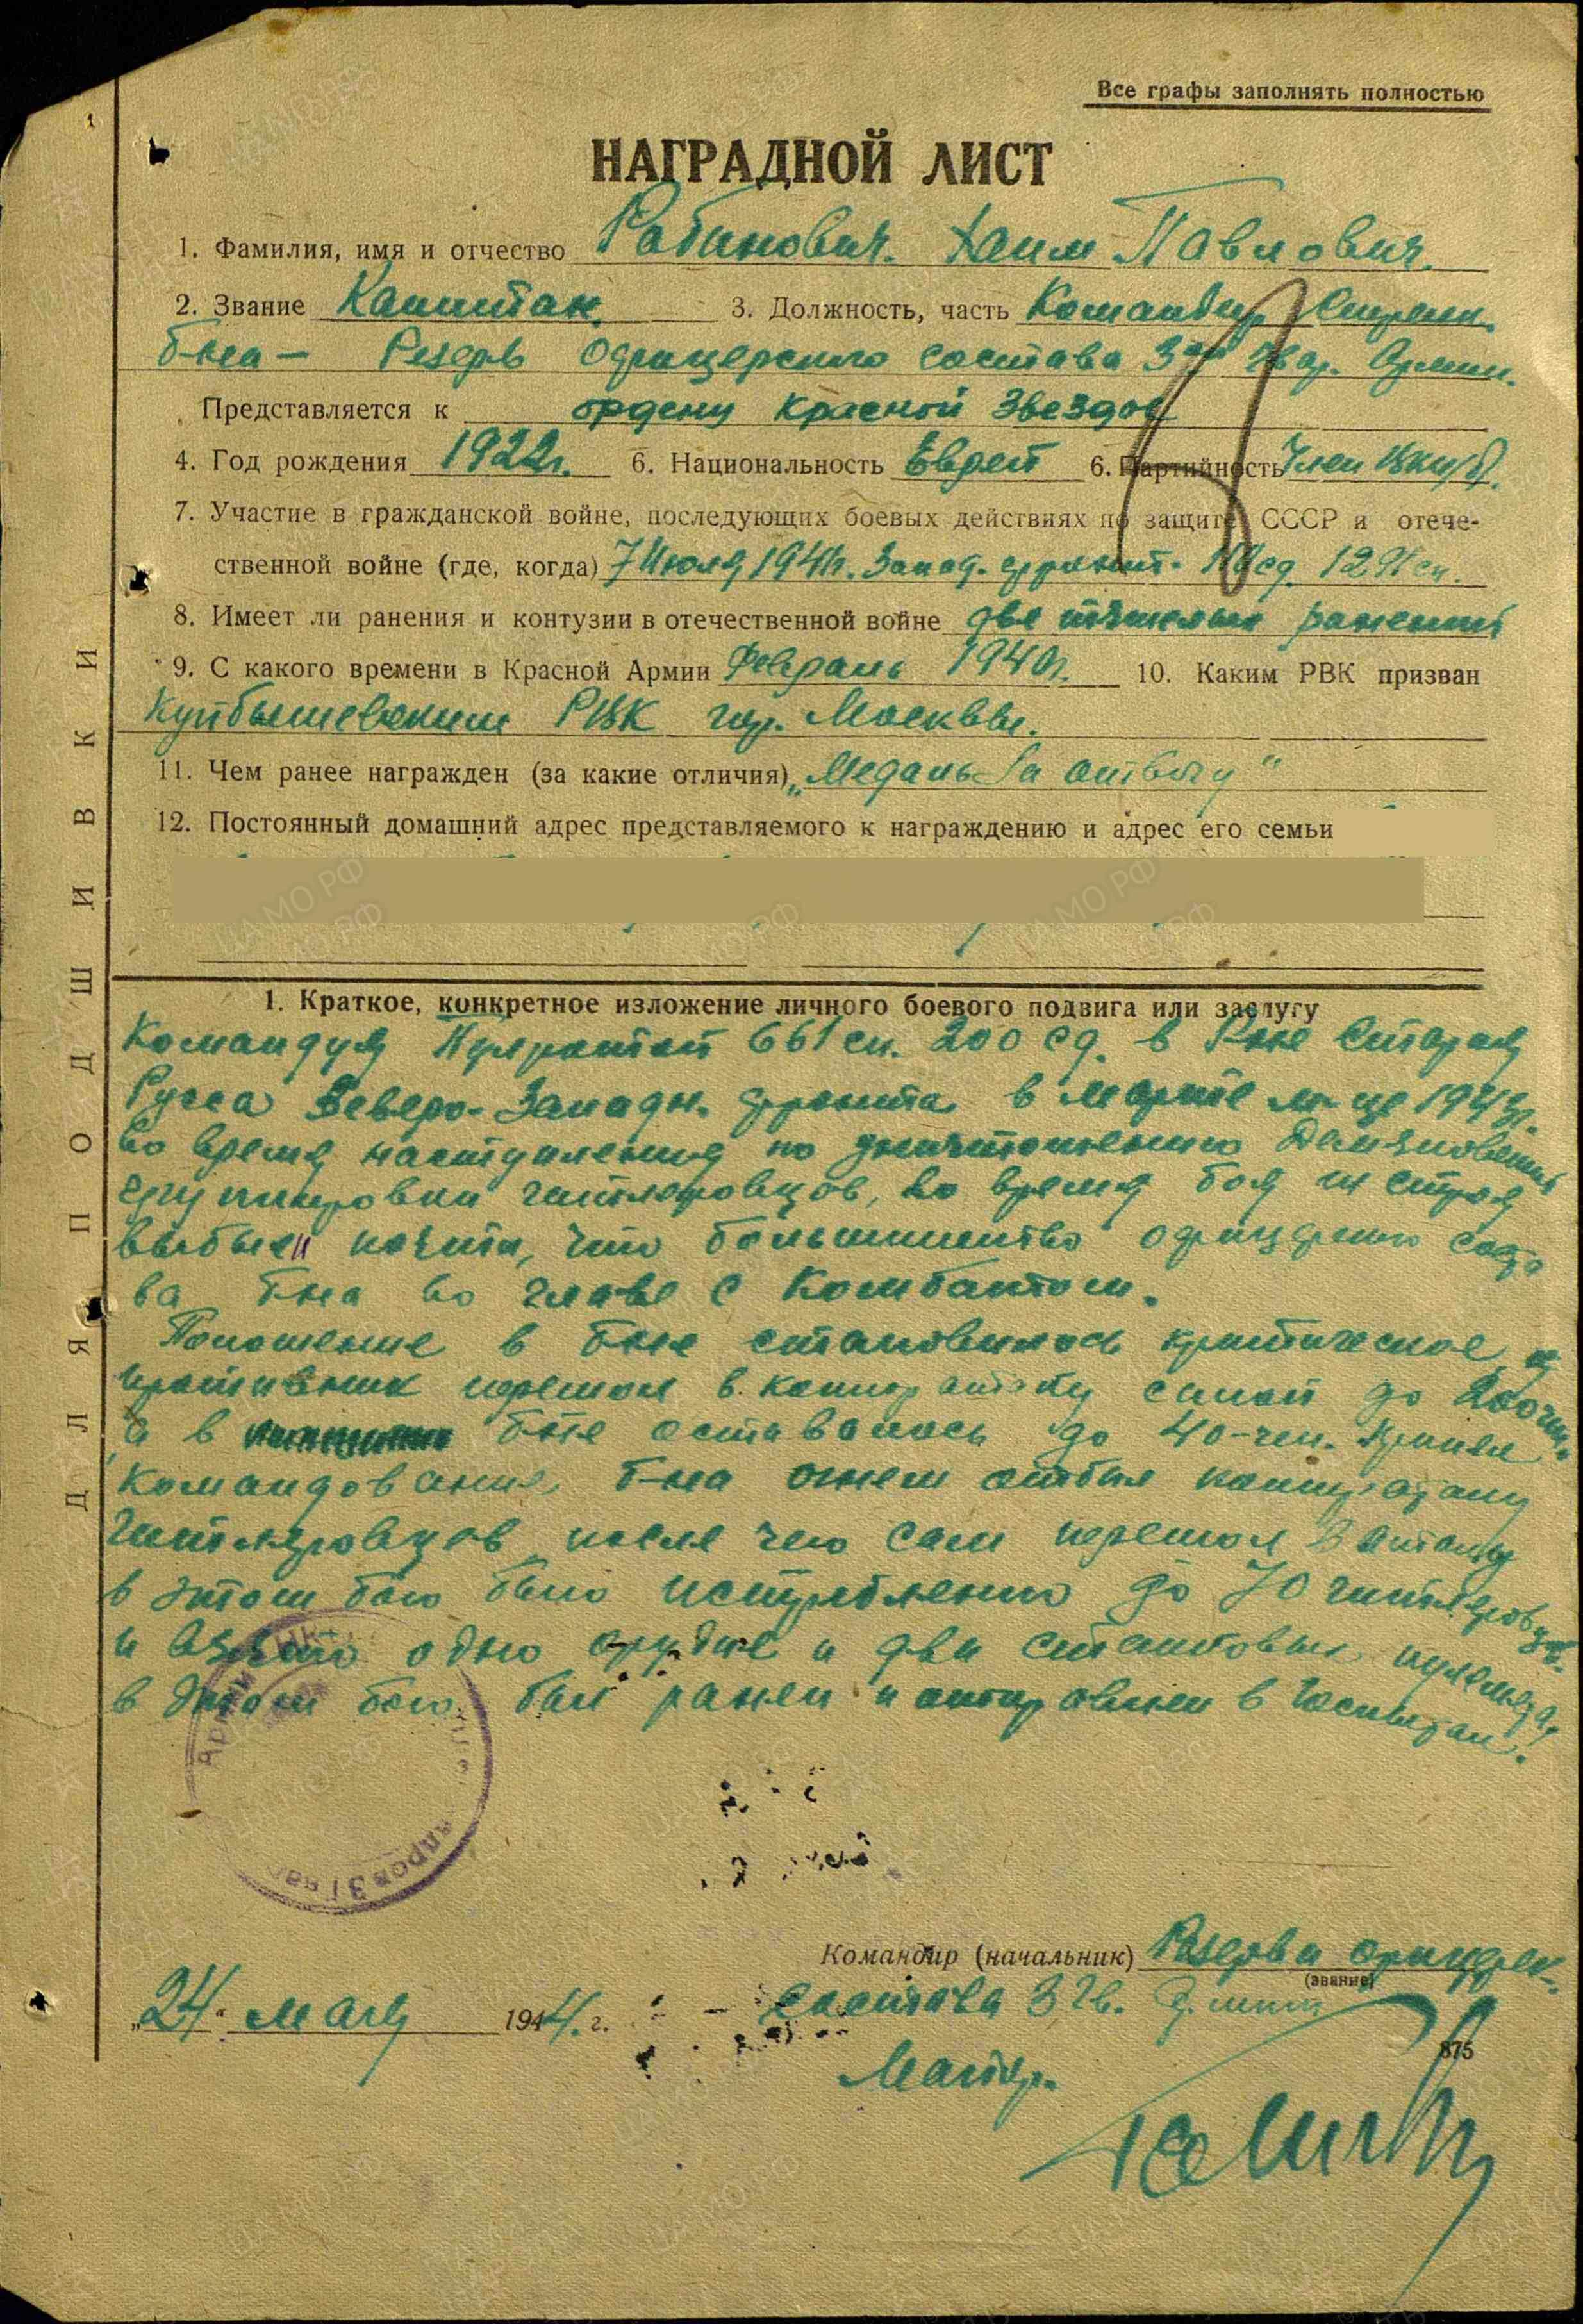 Все графы заполнять полностью
1
НАГРАДНОЙ ЛИСТ
1. Фамилия, имя и отчество Рабинович. Хаим Павлович.
2. Звание Капитан. 3. Должность, часть Командир Стрелк.
б-на – Резерв Офицерского состава 3ей Гвар. Армии.
Представляется к ордену Красной Звезды
4. Год рождения 1922г. 6. Национальность Еврей 6. Партийность Член ВКП/б/.
7. Участие в гражданской войне, последующих боевых действиях по защите СССР и отече-
ственной войне (где, когда) 7 Июля 1941г. Запад. фронт.
8. Имеет ли ранения и контузии в отечественной войне два тяжелых ранений
9. С какого времени в Красной Армии Февраль 1940г. 10. Каким РВК призван
Куйбышевским РВК гор. Москвы.
11. Чем ранее награжден (за какие отличия) „Медаль За отвагу"
12. Постоянный домашний адрес представляемого к награждению и адрес его семьи
1. Краткое, конкретное изложение личного боевого подвига или заслугу
Командуя Пулротой 661 сп. 200 сд. в р-не Старая
Русса Северо-Западн. фронта в марте м-це
во время наступления по уничтожению Демьяновской
группировки гитлеровцев, во время боя из строя
выбыли почти, что большинство офицерского соста
ва б-на во главе с Комбатом.
Положение в б-не становилось критическое, и
противник перешол в контратаку силой до 200 чел.
а в б-не оставалось до 40-чел. Принял
командование, б-на огнем отбил контратаку
Гитлеровцев после чего сам перешол в атаку
в этом бою было истреблено до 70 гитлеровцев.
и взято одно орудие и два станковых пулемета.
в этом бою был ранен и отправлен в Госпиталь.
Командир (начальник) Резерва офицерск.
(звание)
состава 3 Гв. Армии
„24" мая 1944 г.
875
Майор.
ДЛЯ ПОДШИВКИ
ЦАМО РФ